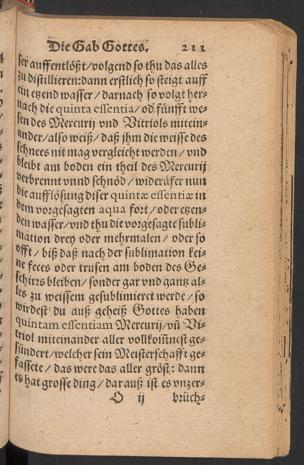 Die Gab Gottes. 211
ser auffentlößt/volgend so thu das alles
zu distillieren: dann erstlich so steigt auff
ein etzend wasser/darnach so volgt her-
nach die quinta essentia/ od' fünfft we-
sen des Mercurij vnd Vitriols mitein-
ander/also weiß/daß jhm die weisse des
schnees nit mag vergleicht werden/vnd
bleibt am boden ein theil des Mercurij
verbrennt vnnd schnöd/ wideräfer nun
die aufflösung diser quintæ essentiæ in
dem vorgesagten aqua fort/oder etzen-
den wasser/vnd thu die vorgesagte subli-
mation drey oder mehrmalen/ oder so
offt/ biß daß nach der sublimation kei-
ne feces oder trusen am boden des Ge-
schirrs bleiben/sonder gar vnd gantz al-
les zu weissem gesublimieret werde/so
wirdest du auß geheiß Gottes haben
quintam essentiam Mercurij/vñ Vi-
triol miteinander aller vollkom̃nest ge-
sündert/welcher sein Meisterschafft ge-
fassete/das were das aller gröst: dann
es hat grosse ding/darauß ist es vnzer-
O ij brüch-